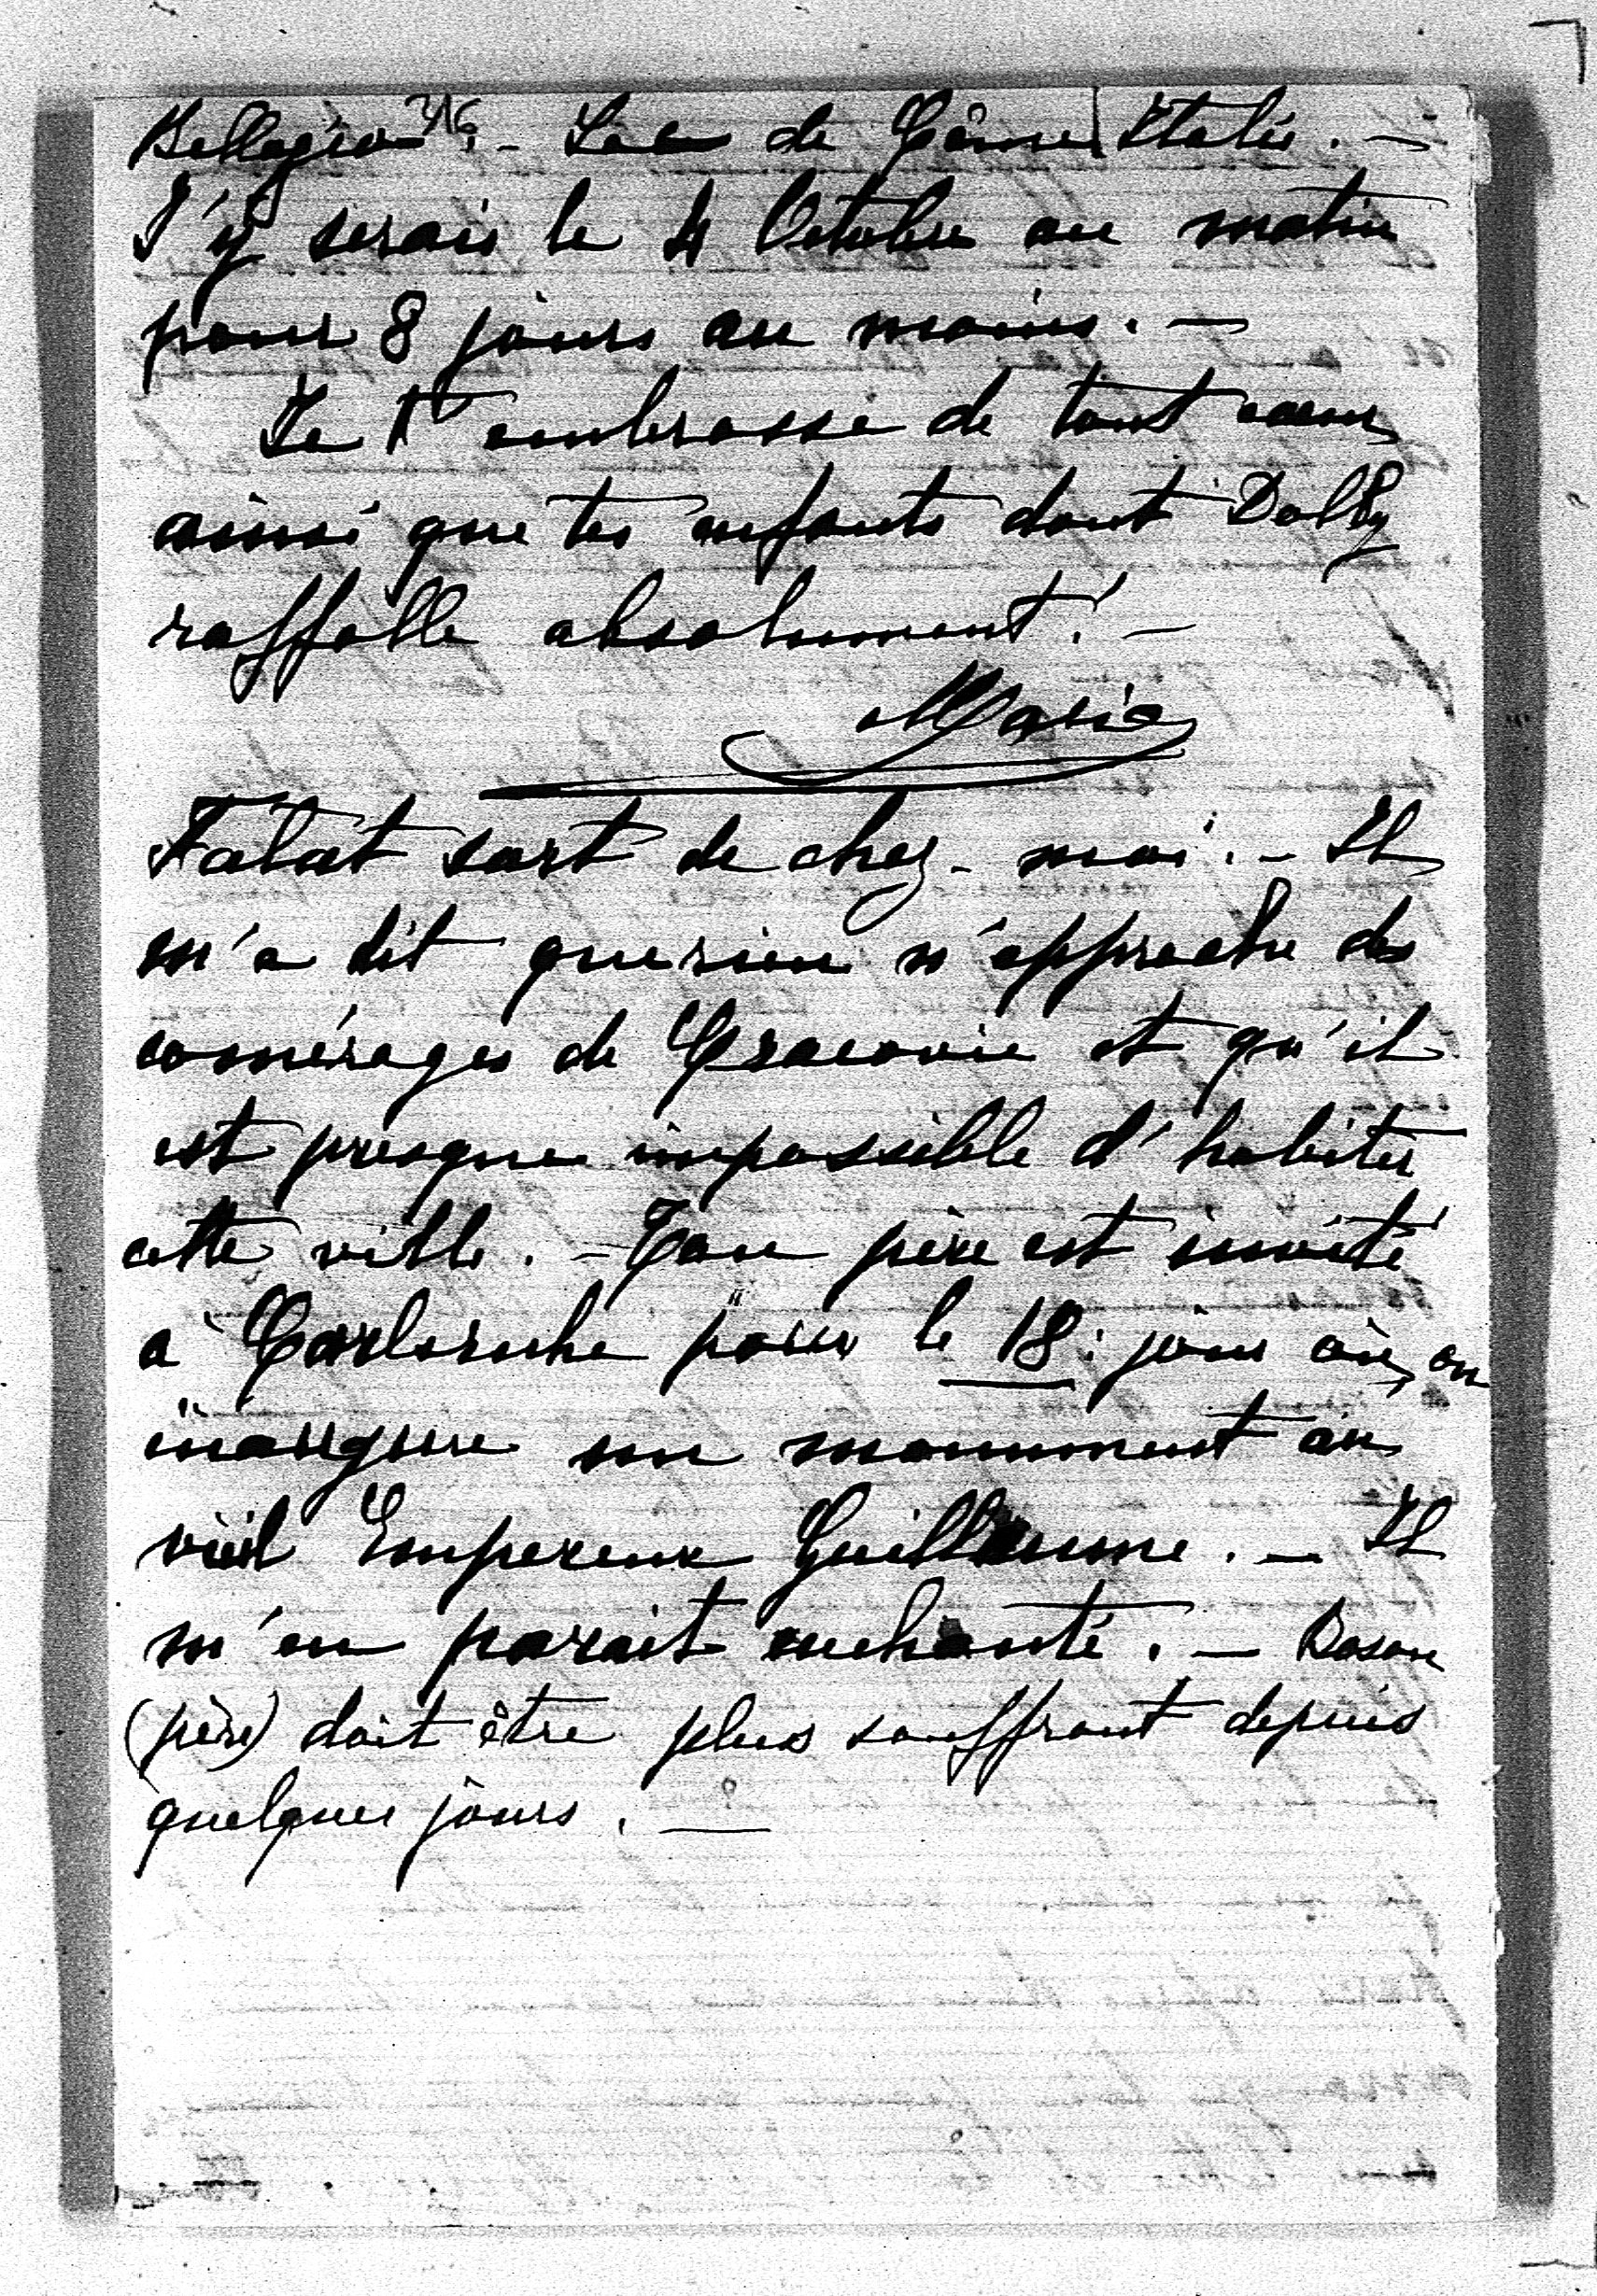 Bellagio 316. - Lac de Côme Italie. -
J'y serais le 4 Octobre au matin
pour 8 jours au moins. -
Je t'embrasse de tout coeur
ainsi que tes enfants dont Dolly
raffolle absolument! -
Marie
Falat sort de chez-moi. - Il
m'a dit que rien n'approche des
comérages de Cracovie et qu'il
est presque impossible d'habiter
cette ville. - Ton père est invité
à Carlsruhe pour le 18: jour où on
inaugure un monument au
vieil Empereur Guillaume. - Il
m'en parait enchanté. - Boson
(père) doit être plus souffrant depuis
quelques jours. -